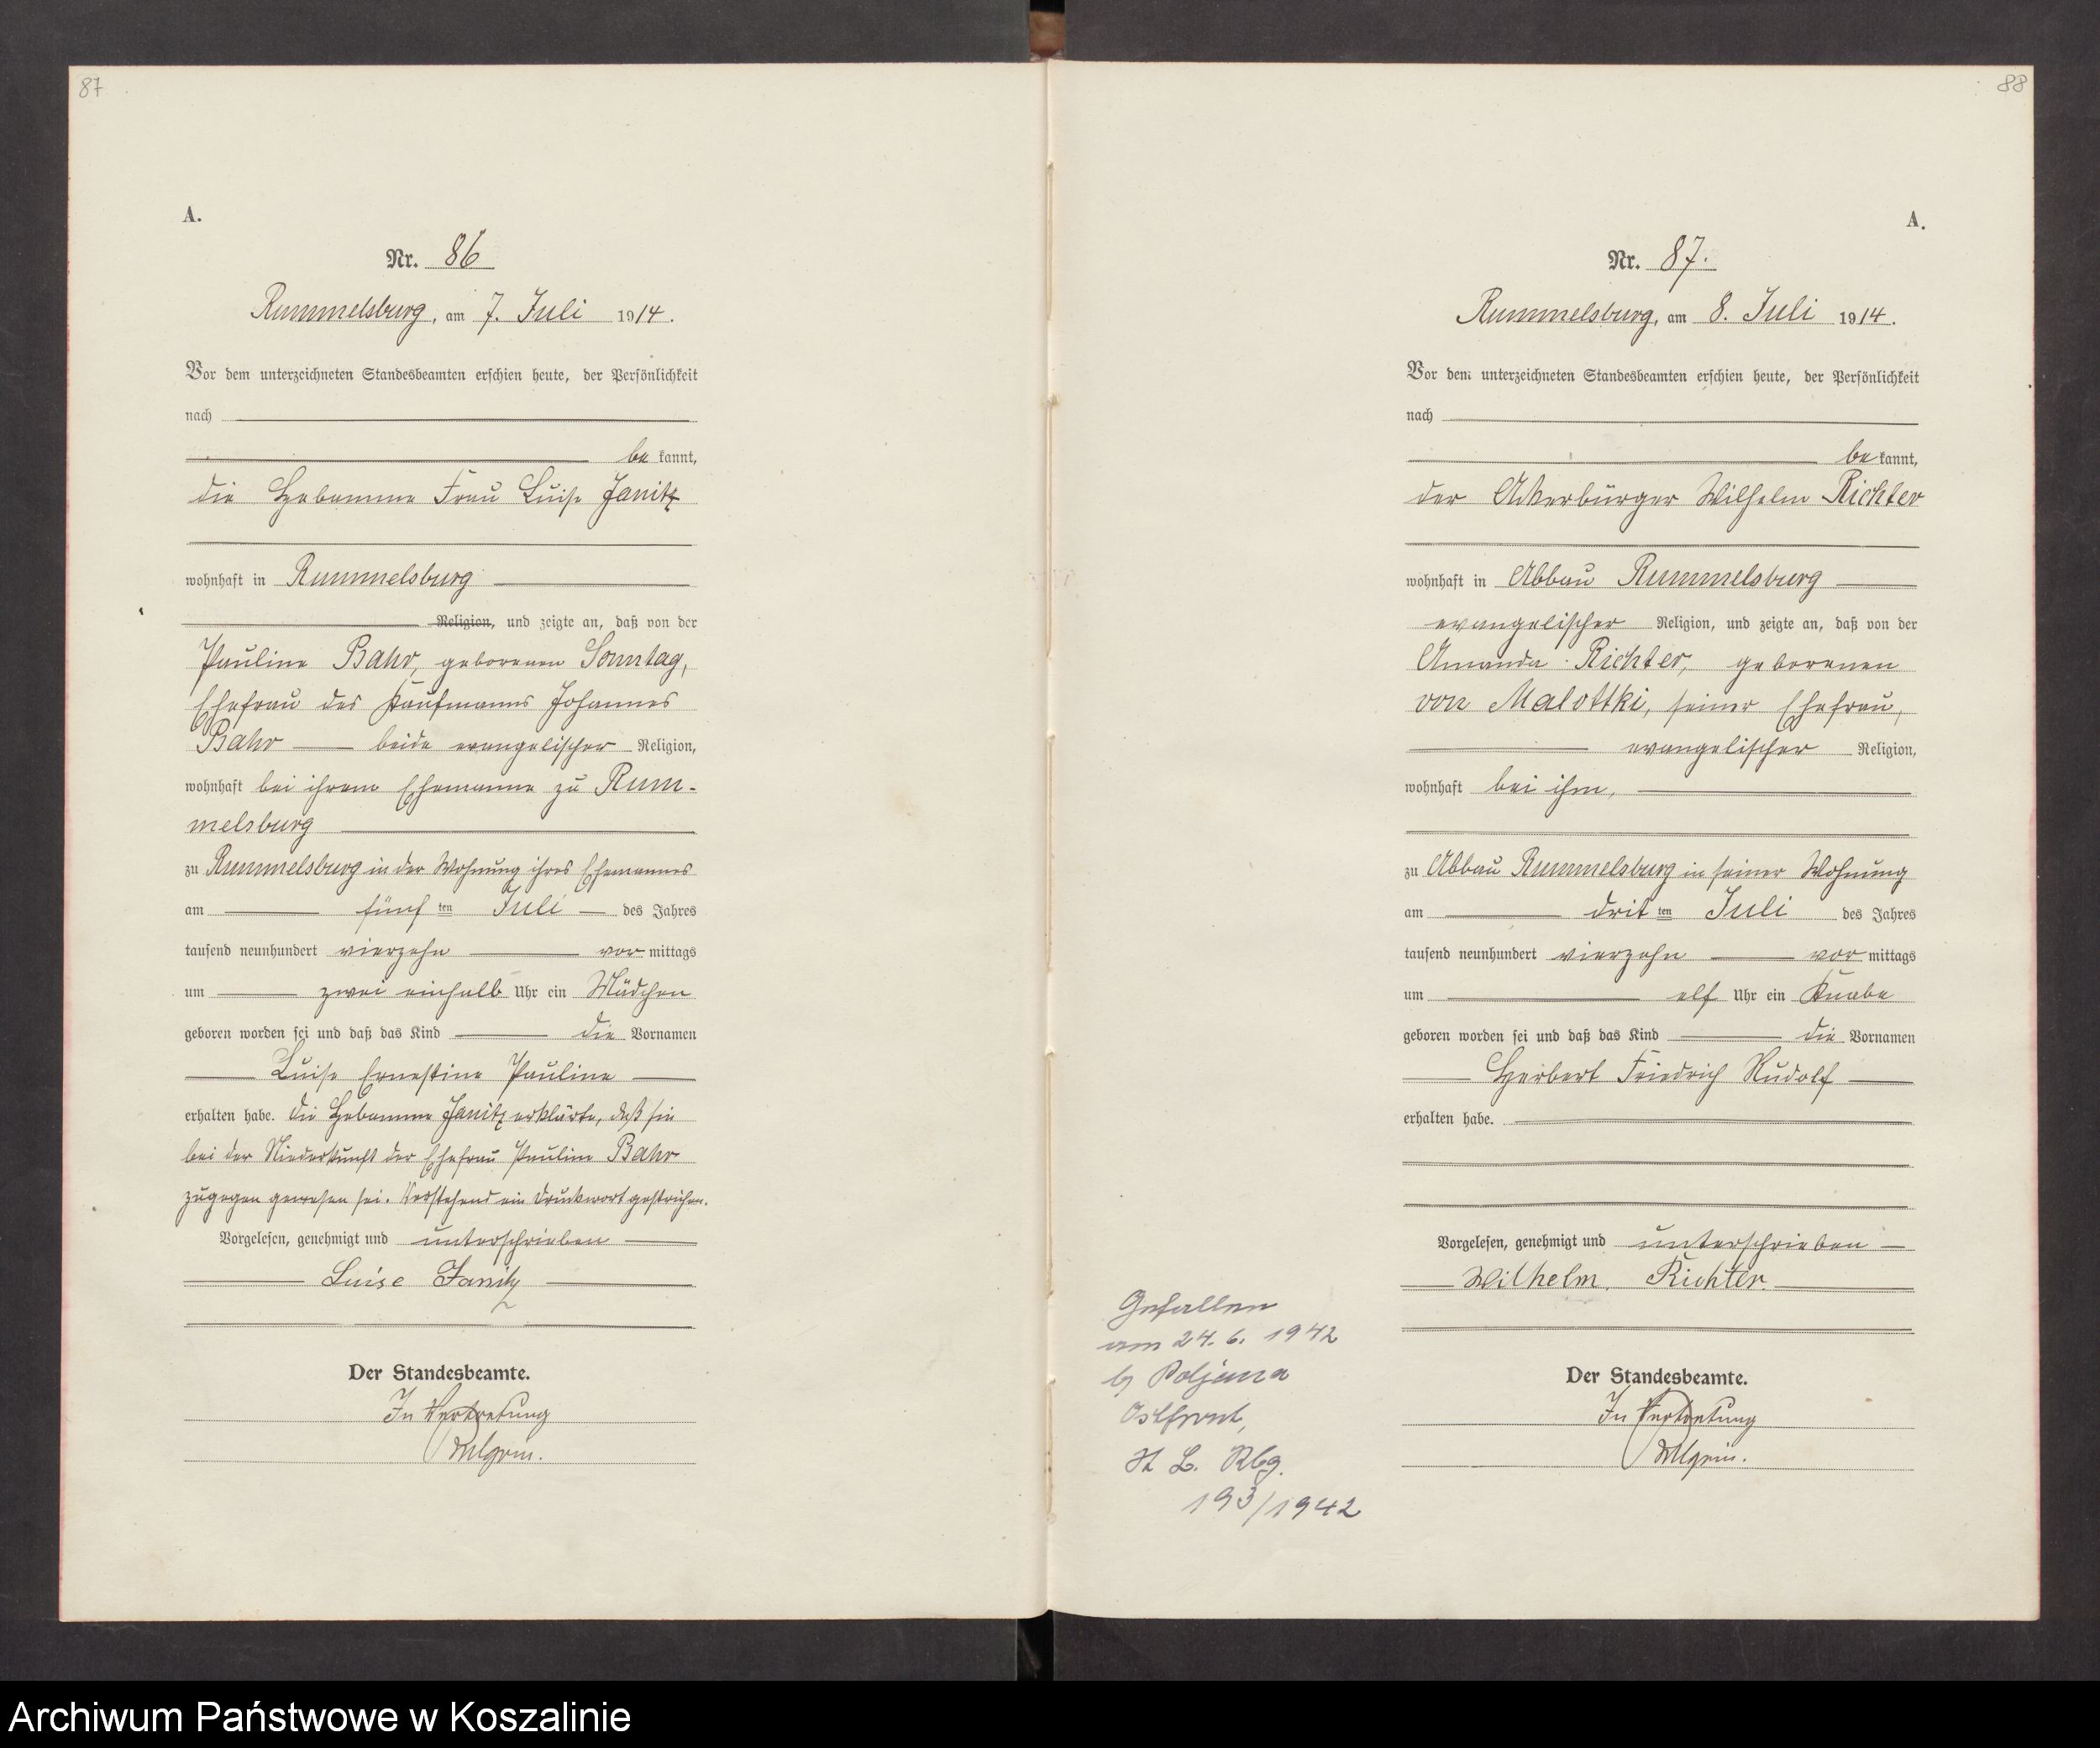 87
A.
Nr. 86
Rummelsburg, am 7. Juli 1914.
Vor dem unterzeichneten Standesbeamten erschien heute, der Persönlichkeit
nach
be kannt,
die Hebamme Frau Luise Janitz
wohnhaft in Rummelsburg
Religion, und zeigte an, daß von der
Pauline Bahr, geborenen Sonntag,
Ehefrau des Kaufmanns Johannes
Bahr beide evangelischer Religion,
wohnhaft bei ihrem Ehemanne zu Rum-
melsburg
zu Rummelsburg in der Wohnung ihres Ehemannes
am fünf ten Juli des Jahres
tausend neunhundert vierzehn vor mittags
um zwei einhalb Uhr ein Mädchen
geboren worden sei und daß das Kind die Vornamen
Luise Ernestine Pauline
erhalten habe. Die Hebamme Janitz erklärte, daß sie
bei der Niederkunft der Ehefrau Pauline Bahr
zugegen gewesen sei. Vorstehend ein Druckwort gestrichen.
Vorgelesen, genehmigt und unterschrieben
Luise Janitz
Der Standesbeamte.
In Vertretung
88
A.
Nr. 87.
Rummelsburg, am 8. Juli 1914.
Vor dem unterzeichneten Standesbeamten erschien heute, der Persönlichkeit
nach
be kannt,
der Ackerbürger Wilhelm Richter
wohnhaft in Abbau Rummelsburg
evangelischer Religion, und zeigte an, daß von der
Amanda Richter, geborenen
von Malottki, seiner Ehefrau,
evangelischer Religion,
wohnhaft bei ihm,
zu Abbau Rummelsburg in seiner Wohnung
am drit ten Juli des Jahres
tausend neunhundert vierzehn vor mittags
um elf Uhr ein Knabe
geboren worden sei und daß das Kind die Vornamen
Herbert Friedrich Rudolf
erhalten habe.
Vorgelesen, genehmigt und unterschrieben
Wilhelm Richter.
Der Standesbeamte.
In Vertretung
Gefallen
am 24. 6. 1942
b/ Poljana
Ostfront,
Rbg.
193/1942
Archiwum Państwowe w Koszalinie